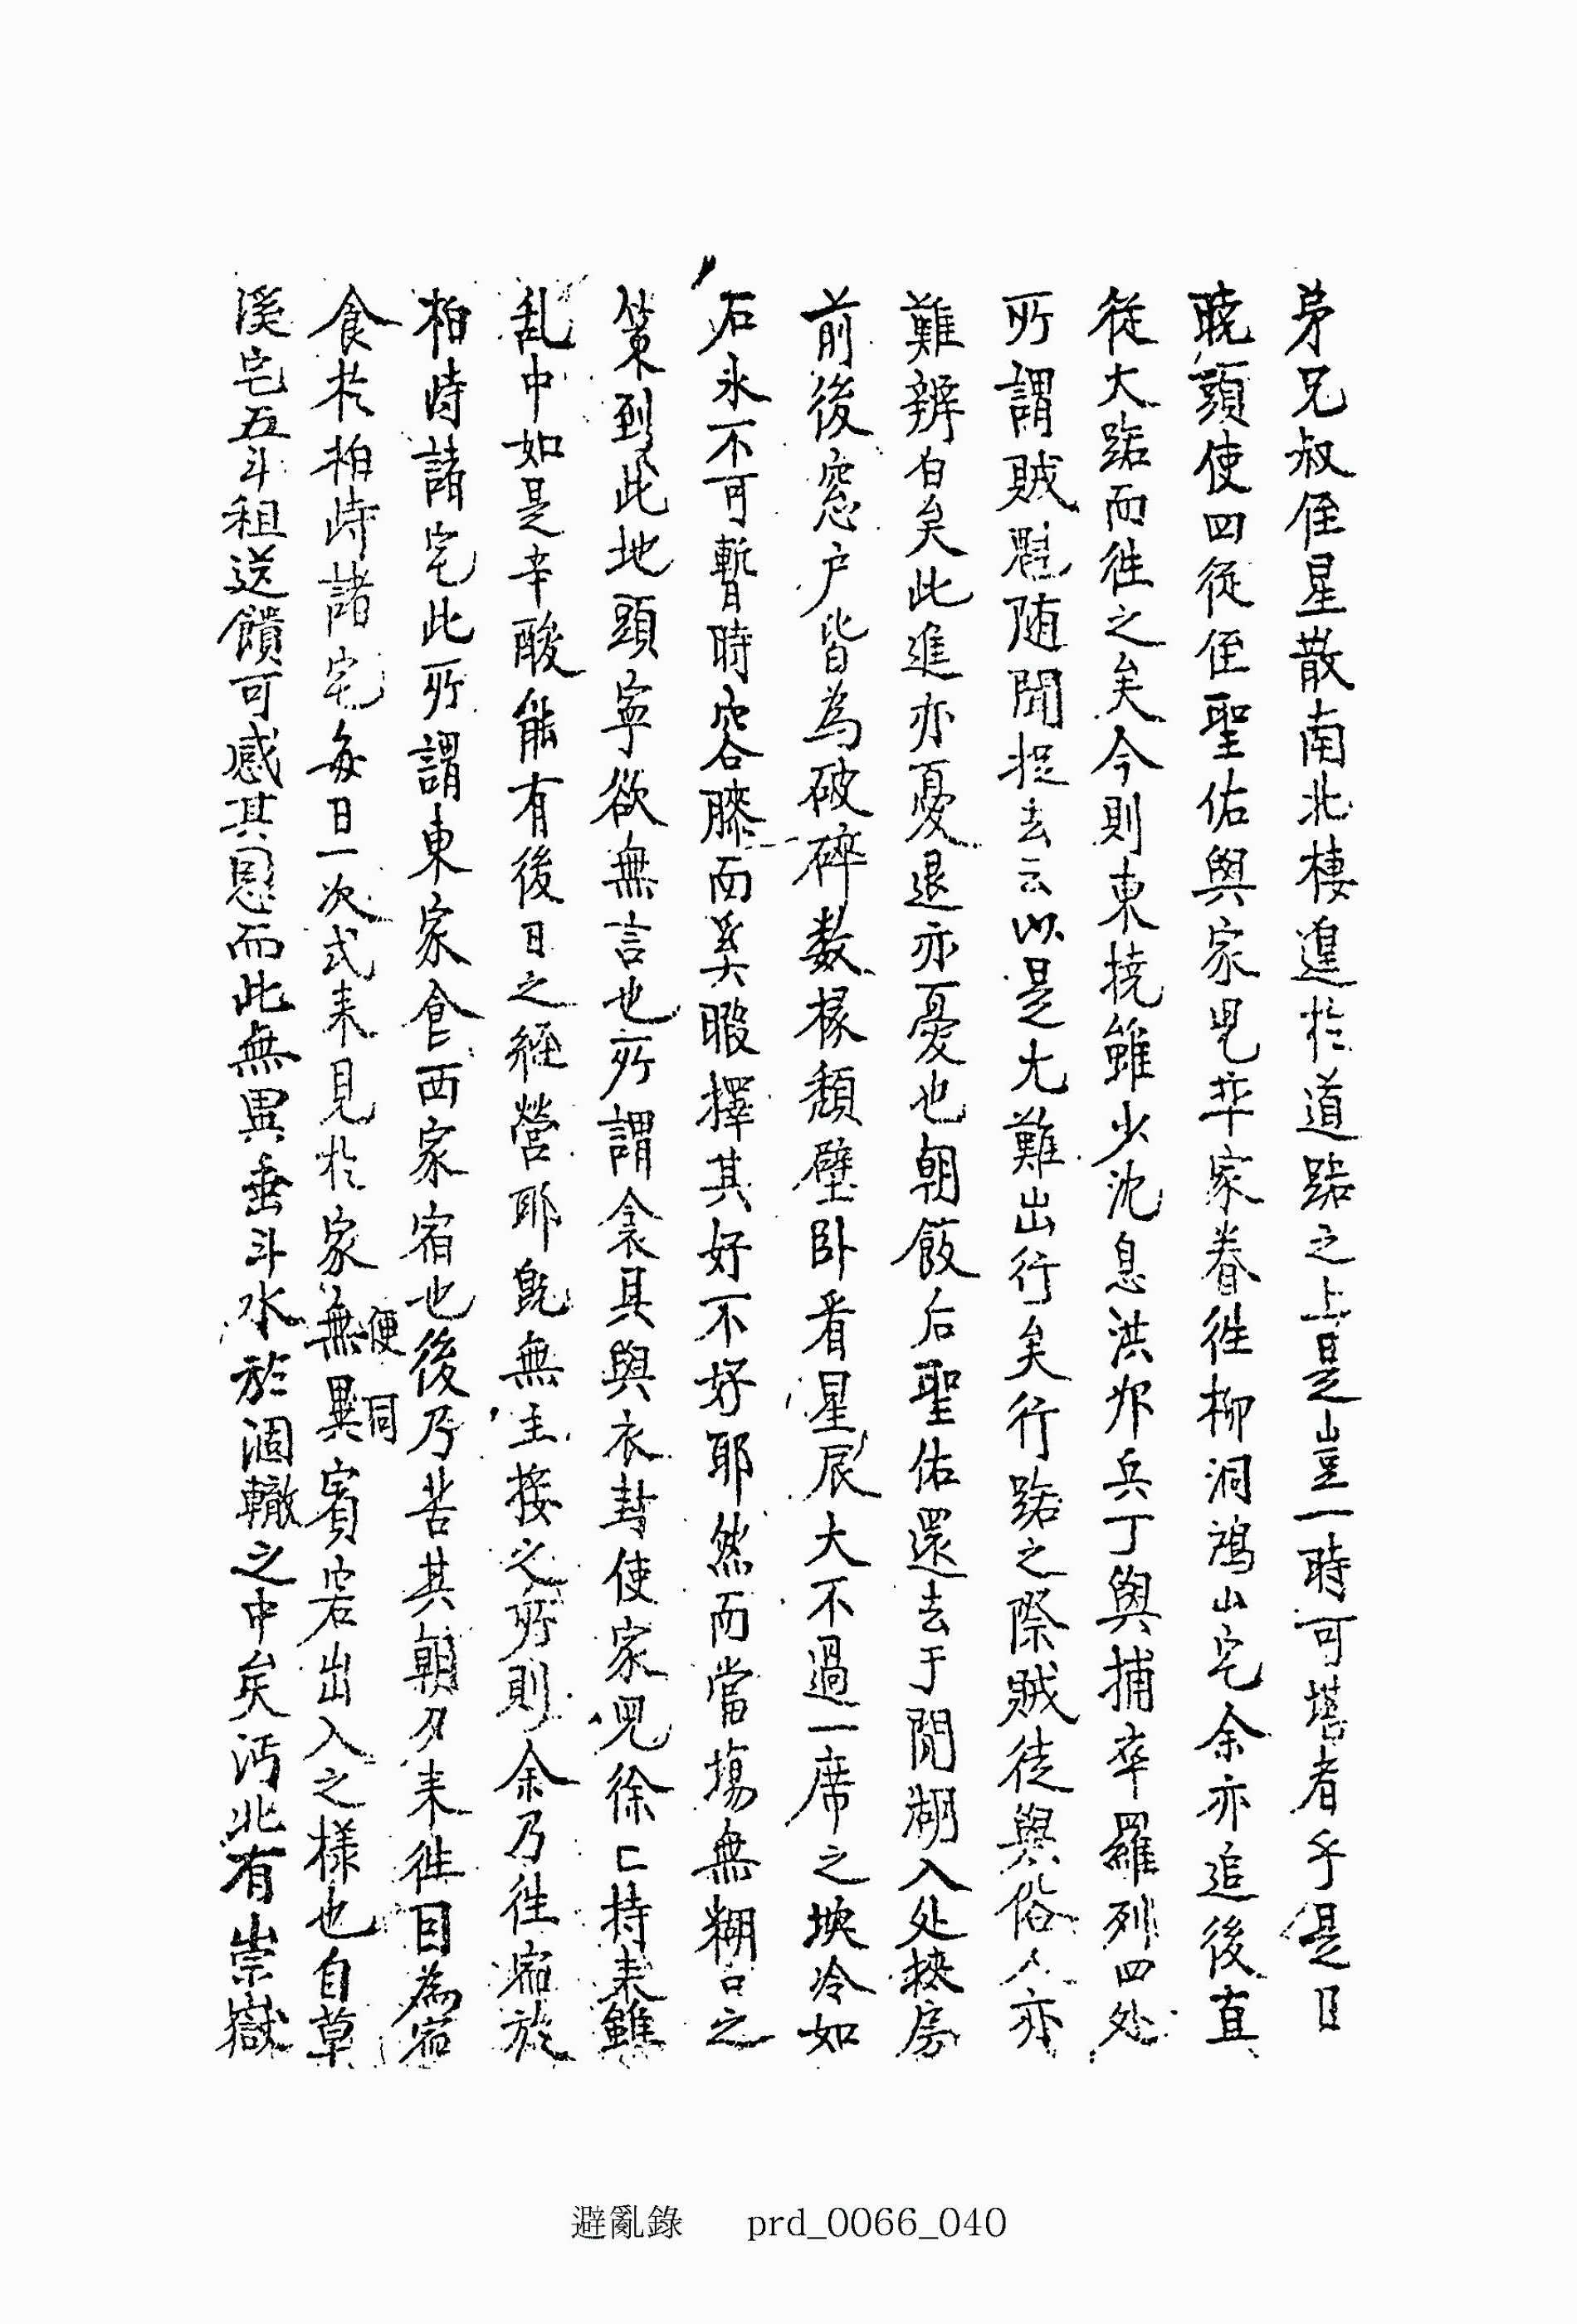 弟兄叔侄星散南北棲遑於道路之上是豈一時可堪者乎是日
曉頭使四從侄聖佑與家児率家眷徃柳洞鴻山宅余亦追後直
從大路而徃之矣今則東撓雖少沈息洪州兵丁與捕卒羅列四处
所謂賊魁随聞捉去云以是尤難出行矣行路之際賊徒與俗人亦
難辨白矣此進亦憂退亦憂也朝飯后聖佑還去于閒湖入处挾房
前後窓户皆為破碎数椽頹壁卧看星辰大不過一席之埃冷如
石氷不可暫時容膝而奚暇擇其好不好耶然而當場無糊口之
策到此地頭寧欲無言也所謂衾具與衣封使家児徐〻持来雖
乱中如是辛酸能有後日之經營耶旣無主接之所則余乃徃宿於
柏峙諸宅此所謂東家食西家宿也後乃苦其朝夕来徃因為宿
食於柏峙諸宅每日一次式来見於家無異賓客出入之樣也自草
便同
溪宅五斗租送饋可感其恩而此無異垂斗水於涸轍之中矣沔北有崇嶽
避亂錄 prd_0066_040